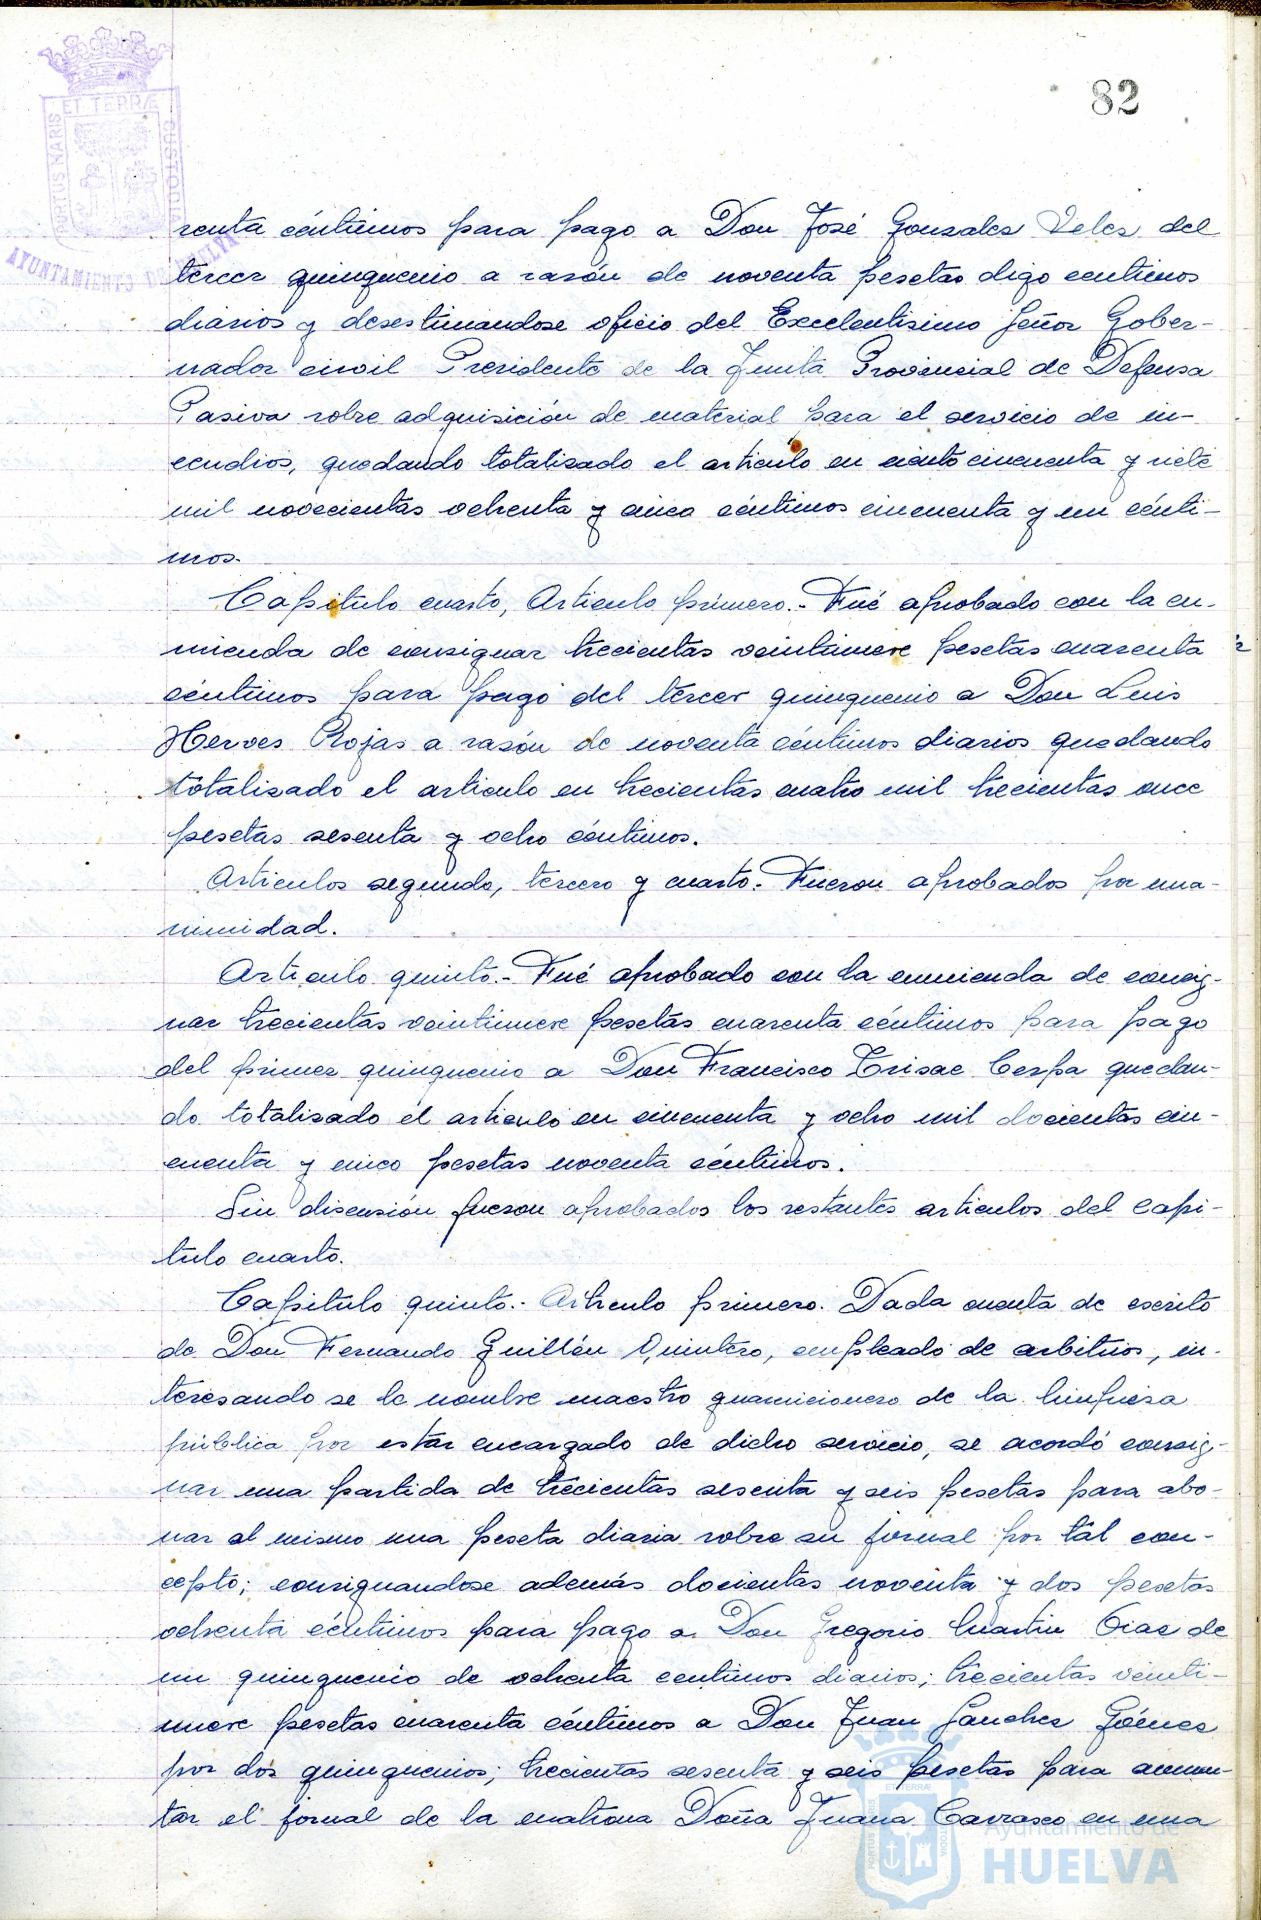 82
PORTUS MARIS ET TERRÆ CUSTODIA
AYUNTAMIENTO DE HUELVA
renta céntimos para pago a Don José Gonzales Veles del
tercer quinquenio a razón de noventa pesetas digo centimos
diarios y desestimandose oficio del Excelentisimo Señor Gober-
nador civil Presidente de la Junta Provincial de Defensa
Pasiva sobre adquisición de material para el servicio de in-
cendios, quedando totalizado el articulo en ciento cincuenta y siete
mil novecientas ochenta y cinco céntimos cincuenta y un cénti-
mos.
Capitulo cuarto, Articulo primero.- Fué aprobado con la en-
mienda de consignar trecientas veintinueve pesetas cuarenta
céntimos para pago del tercer quinquenio a Don Luis
Herves Rojas a razón de noventa céntimos diarios quedando
totalizado el articulo en trecientas cuatro mil trecientas once
pesetas sesenta y ocho céntimos.
Articulos segundo, tercero y cuarto.- Fueron aprobados por una-
nimidad.
Articulo quinto.- Fué aprobado con la enmienda de consig-
nar trecientas veintinueve pesetas cuarenta céntimos para pago
del primer quinquenio a Don Francisco Trisac Cerpa quedan-
do totalizado el articulo en cincuenta y ocho mil docientas cin-
cuenta y cinco pesetas noventa céntimos.
Sin discusión fueron aprobados los restantes articulos del capi-
tulo cuarto.
Capitulo quinto.- Articulo primero. Dada cuenta de escrito
de Don Fernando Guillén Quintero, empleado de arbitrios, in-
teresando se le nombre maestro guarnicionero de la limpieza
pública por estar encargado de dicho servicio, se acordó consig-
nar una partida de trecientas sesenta y seis pesetas para abo-
nar al mismo una peseta diaria sobre su jornal por tál con-
cepto; consignandose además docientas noventa y dos pesetas
ochenta céntimos para pago a Don Gregorio Martin Diaz de
un quinquenio de ochenta centimos diarios; trecientas veinti-
nueve pesetas cuarenta céntimos a Don Juan Sánchez Gómes
por dos quinquenios; trecientas sesenta y seis pesetas para aumen-
tar el jornal de la matrona Doña Juana Carrasco en una
Ayuntamiento de
HUELVA